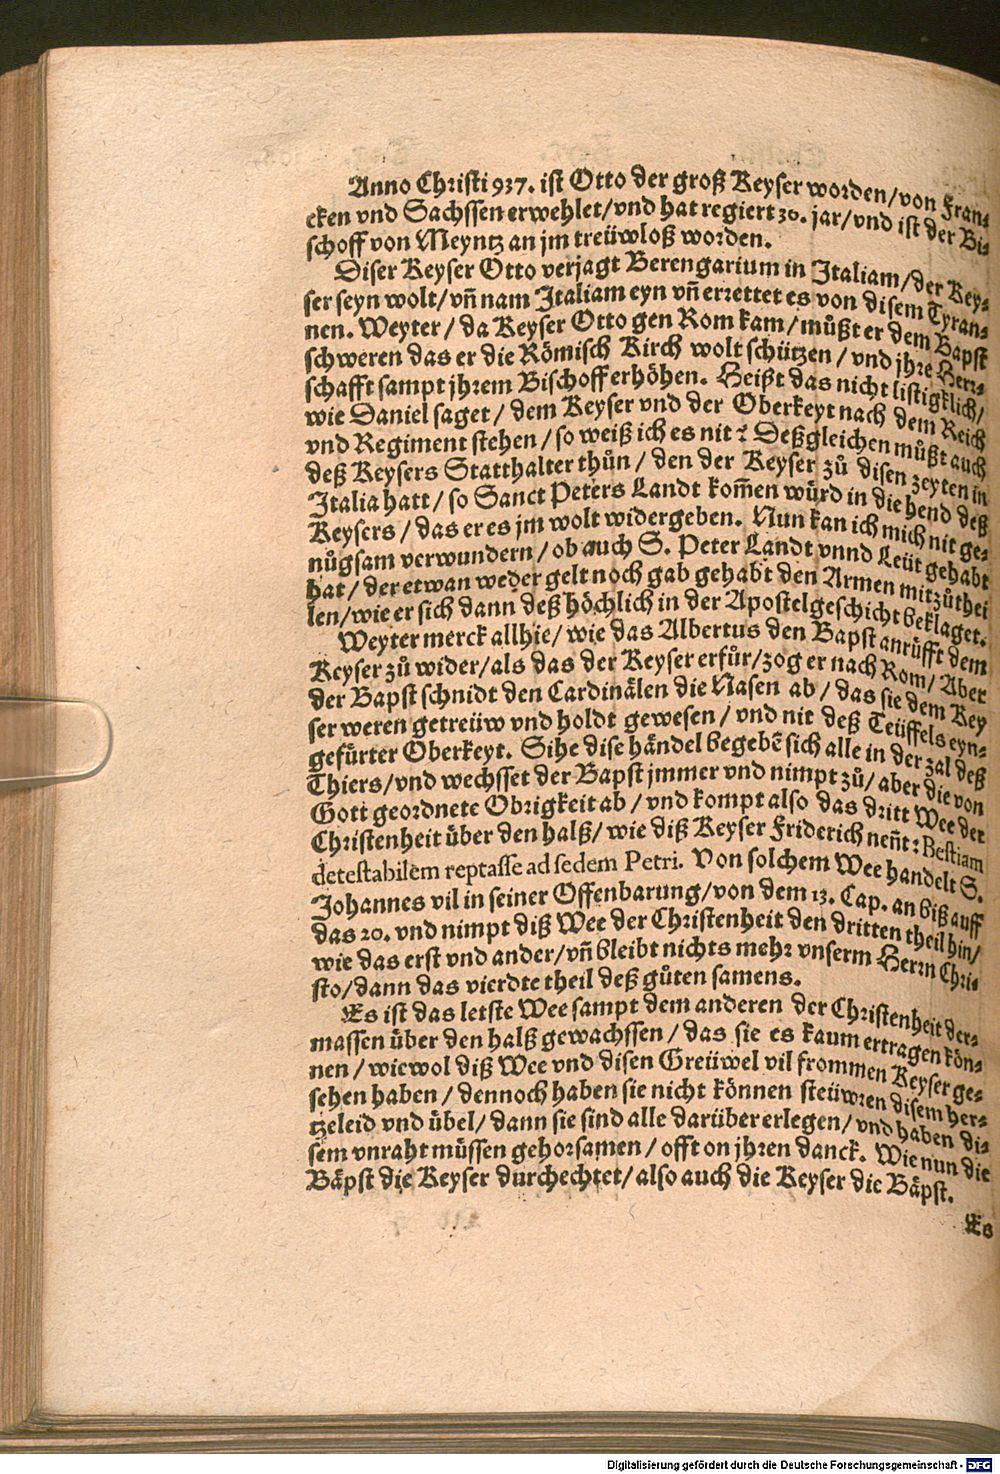 Anno Christi 937. ist Otto der groß Keyser worden/von Fran⸗
cken vnd Sachssen erwehlet/vnd hat regiert 36. jar/vnd ist der Bi⸗
schoff von Meyntz an jm treüwloß worden.
Diser Keyser Otto verjagt Berengarium in Italiam/der Key⸗
ser seyn wolt/vñ nam Italiam eyn vñ errettet es von disem Tyran⸗
nen. Weyter/da Keyser Otto gen Rom kam/müßt er dem Bapst
schweren das er die Römisch Kirch wolt schützen/vnd jhre Herr⸗
schafft sampt jhrem Bischoff erhöhen. Heißt das nicht listigklich/
wie Daniel saget/dem Keyser vnd der Oberkeyt nach dem Reich
vnd Regiment stehen/so weiß ich es nit? Deßgleichen müßt auch
deß Keysers Statthalter thůn/den der Keyser zů disen zeyten in
Italia hatt/so Sanct Peters Landt kom̃en würd in die hend deß
Keysers/das er es jm wolt widergeben. Nun kan ich mich nit ge⸗
nůgsam verwundern/ob auch S. Peter Landt vnnd Leüt gehabt
hat/der etwan weder gelt noch gab gehabt den Armen mitzůthei
len/wie er sich dann deß höchlich in der Apostelgeschicht beklaget.
Weyter merck allhie/wie das Albertus den Bapst anrüfft dem
Keyser zů wider/als das der Keyser erfůr/zog er nach Rom/Aber
der Bapst schnidt den Cardinälen die Nasen ab/das sie dem Key
ser weren getreüw vnd holdt gewesen/vnd nit deß Teüffels eyn⸗
gefürter Oberkeyt. Sihe dise händel begebẽ sich alle in der zal deß
Thiers/vnd wechsset der Bapst jmmer vnd nimpt zů/aber die von
Gott geordnete Obrigkeit ab/vnd kompt also das dritt Wee der
Christenheit über den halß/wie diß Keyser Friderich neñt: Bestiam
detestabilem reptasse ad sedem Petri. Von solchem Wee handelt S.
Johannes vil in seiner Offenbarung/von dem 13. Cap. an biß auff
das 20. vnd nimpt diß Wee der Christenheit den dritten theil hin/
wie das erst vnd ander/vñ bleibt nichts mehr vnserm Herrn Chri⸗
sto/dann das vierdte theil deß gůten samens.
Es ist das letste Wee sampt dem anderen der Christenheit der⸗
massen über den halß gewachssen/das sie es kaum ertragen kön⸗
nen/wiewol diß Wee vnd disen Greüwel vil frommen Keyser ge⸗
sehen haben/dennoch haben sie nicht können steüwren disem her⸗
tzeleid vnd übel/dann sie sind alle darüber erlegen/vnd haben di⸗
sem vnraht müssen gehorsamen/offt on jhren danck. Wie nun die
Bäpst die Keyser durchechtet/also auch die Keyser die Bäpst.
Es
Digitalisierung gefördert durch die Deutsche Forschungsgemeinschaft - DFG